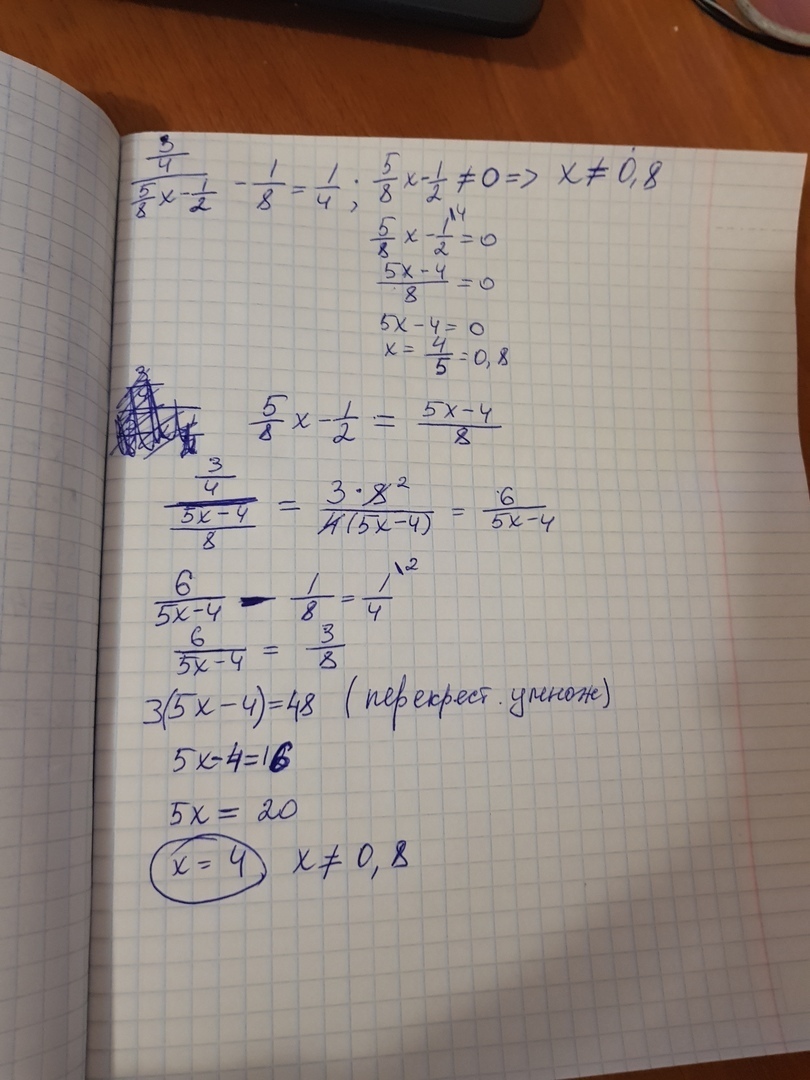 3/4 / (5/8 x - 1/2) - 1/8 = 1/4 ; 5/8 x - 1/2 ≠ 0 => x ≠ 0,8
5/8 x - 1/2 \4 = 0
(5x-4)/8 = 0
5x-4 = 0
x = 4/5 = 0,8
5/8 x - 1/2 = (5x-4)/8
3/4 / ((5x-4)/8) = 3·8 2 / 4(5x-4) = 6/(5x-4)
6/(5x-4) - 1/8 = 1/4 \2
6/(5x-4) = 3/8
3(5x-4)=48 (перекрест. умнож)
5x-4=16
5x = 20
x = 4 x ≠ 0,8